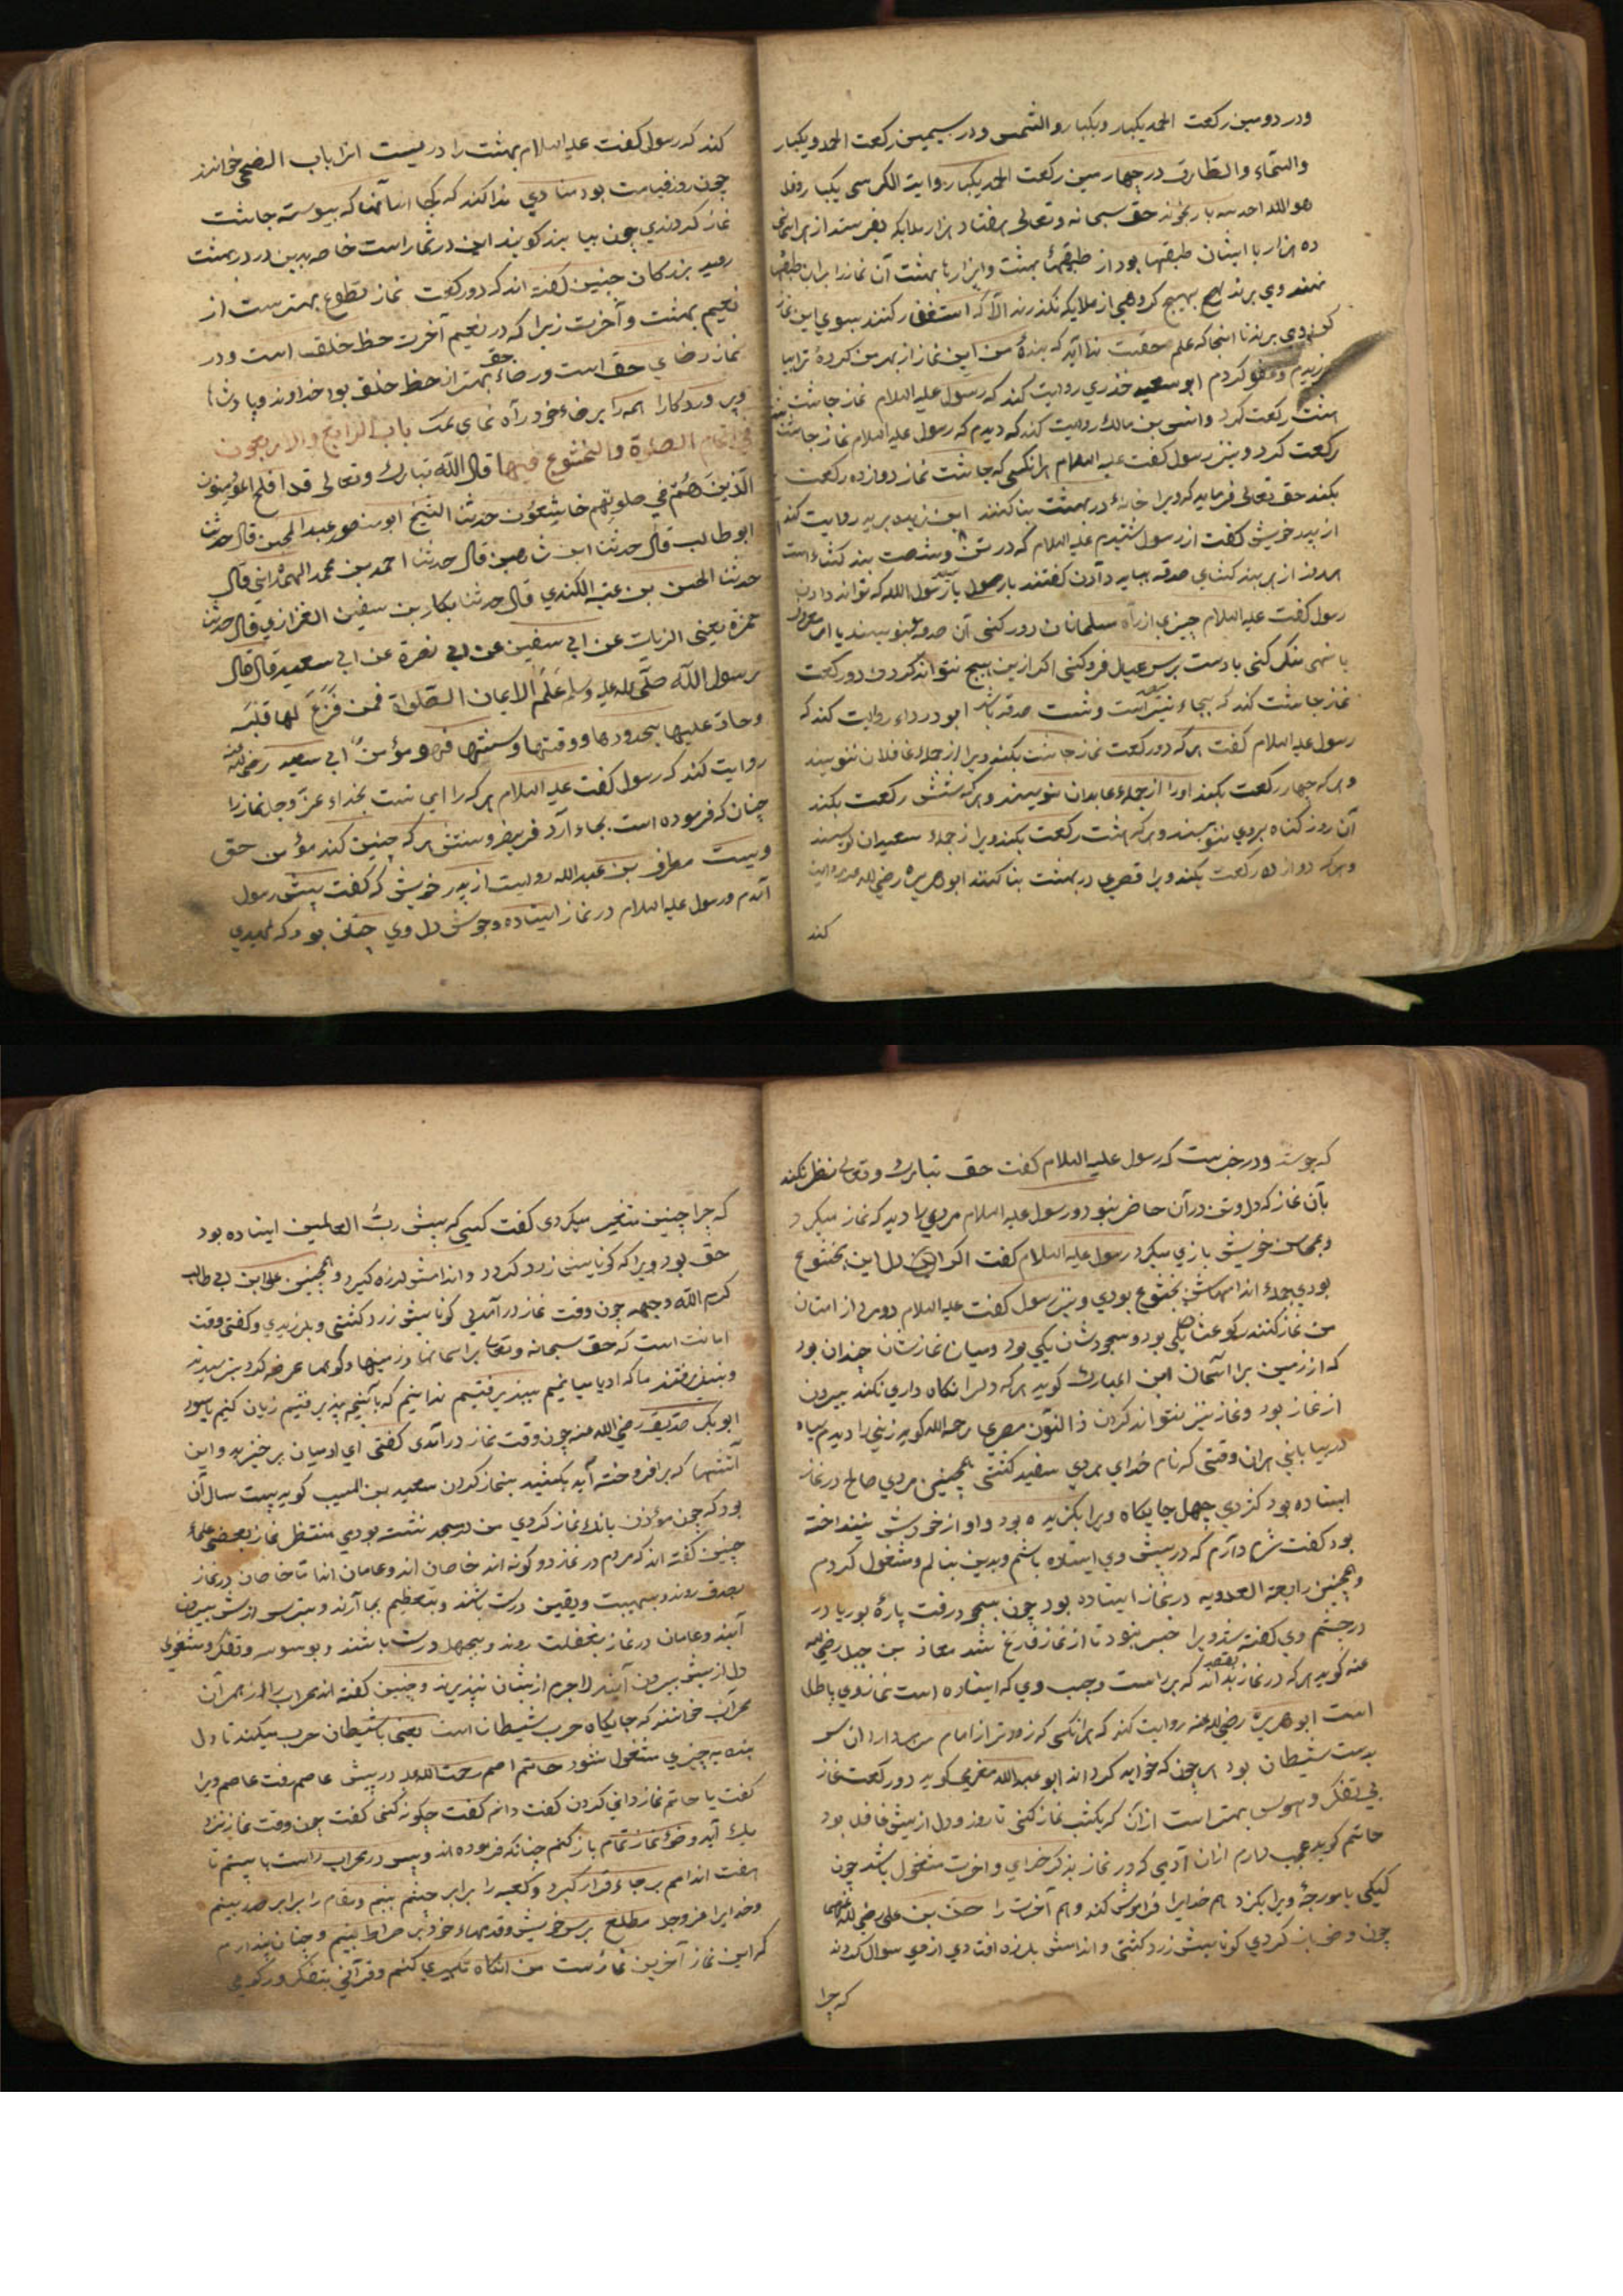 ودر دومین رکعت الحمد یکبار ویکبار والشمس ودر سیمین رکعت الحمد ویکبار
والسّماء والطّارق در چهارمین رکعت الحمد یکبار وایت الکرسی یکبار وقل
هو الله احد سه بار بخواند حق سبحانه وتعالی هفتاد هزار ملایکه بفرستد از هر آسمان
ده هزار با ایشان طبقها بود از طبقهاء بهشت وابزارها بهشت آن نماز را بران طبقها
نهند ومی برند هیچ بهیچ کروهی از ملایکه نکذرند الّا که استغفار کنند سوی این نماز
کن ومی برند تا انجا که علم حقست ندا آید که بندهٔ من این نماز از بهر من کردهٔ ترا بیا
مرزیدم وعفو کردم ابو سعید خدری روایت کند که رسول علیه السلام نماز چاشت
هشت رکعت کرد وانس بن مالک روایت کند که دیدم که رسول علیه السلام نماز چاشت شش
رکعت کرد ونیز رسول کفت علیه السلام هر انکسی که چاشت نماز دوازده رکعت
بکند حق تعالی فرماید که ویرا خانهٔ در بهشت بنا کنند ابن زید بریه روایت کند
از پدر خویش کفت از رسول شنیدم علیه السلام که در تن وشصت بند کشاء است
هر روز از هر بند کشای صدقه بباید دادن کفتند یا رسول الله که تواند دادن
رسول کفت علیه السلام چیزی از راه مسلمانان دور کنی آن صدقه بنویسند یا امر معروف
یا نهی منکر کنی یا دست برسر عیال فرو کنی اکر ازین هیچ نتواند کردن دو رکعت
نماز چاشت کند که بجاء سیصد وشست صدقه باشد ابو درداء روایت کند که
رسول علیه السلام کفت هرکه دو رکعت نماز چاشت بکند ویرا از جملهٔ غافلان ننویسند
وهرکه چهار رکعت بکند اورا از جملهٔ عابدان بنویسند وهرکه شش رکعت بکند
آن روز کناه بروی ننویسند وهرکه هشت رکعت بکند ویرا از جملهٔ سعیدان نویسند
وهرکه دوازده رکعت بکند ویرا قصری در بهشت بنا کنند ابو هریره رضی الله عنه روایت
کند
کند که رسول کفت علیه السلام بهشت را دریست انرا باب الضحی خوانند
چون روز قیامت بود منادی ندا کند که کجا اند آنها که پیوسته چاشت
نماز کردندی چون بیایند کویند این در شماراست خاصه بدین در در بهشت
روید بزرکان چنین کفته اند که دو رکعت نماز تطوع بهترست از
نعیم بهشت وآخرت زیرا که در نعیم آخرت حظ خلقست ودر
نماز رضای حق است ورضاء حق بهتر از حظ خلق بود خداوندا وپادشاها
وپروردکارا همه را برضاء خود راه نمای بمنّک باب الرابع والاربعون
في اتمام الصلوة والخشوع فیها قال الله تبارک وتعالی قد افلح المؤمنون
الّذین هُم في صلوتهم خاشعون حدثنا الشیخ ابو منصور عبد المحسن قال حدثنا
ابو طالب قال حدثنا ابن شاهین قال حدثنا احمد بن محمد الهمدانی قال
حدثنا الحسن بن عتبه الکندي قال حدثنا بکار بن سفین الفزاري قال حدثنا
حمزة یعنی الزیات عن ابی سفین عن ابی نضرة عن ابی سعید قال قال
رسول الله صلّی الله علیه وسلّم عَلَمُ الایمان الصّلوة فمن فَرَّغَ لها قلبَه
وحاذ علیها بحدودها ووقتها وسنتها فهو مؤمنٌ ابی سعید رضی الله عنه
روایت کند که رسول کفت علیه السلام هرکه را ای نیت بخداء عزّ وجل نماز را
چنان که فرموده است بجاء آرد فریضه وسنتش هرکه چنین کند مؤمن حق
ویست مطرف بن عبد الله روایت از پدر خویش که کفت پیش رسول
آمدم ورسول علیه السلام در نماز ایستاده وجوش دل وی چنان بود که
که جوشد ودر خبرست که رسول علیه السلام کفت حق تبارک وتعالی نظر نکند
بآن نماز که دل وتن در آن حاضر نبود ورسول علیه السلام مردی را دید که نماز میکرد
وبمحاسن خویش بازی میکرد رسول علیه السلام کفت اکر دل این بخشوع
بودی جملهٔ اندامهاش بخشوع بودی ونیز رسول کفت علیه السلام دو مرد از امتان
من نماز کنند رکوعشان یکی بود وسجودشان یکی بود ومیان نمازشان چندان بود
که از زمین برا آسمان ابن المبارک کوید هرکه دل را نکاه داری نکند بیرون
از نماز بود ونماز نیز نتواند کردن ذا النّون مصری رحمه الله کوید زنی را دیدم سیاه
در بیابانی هران وقتی که نام خدای بردی سفید کشتی همچنین مردی صالح در نماز
ایستاده بود کژدمی چهل جایکاه ویرا بکزیده بود واو از خودش نینداخته
بود کفت شرم دارم که در پیش وی ایستاده باشم وبدین بنالم ومشغول کردم
وهمچنین رابعة العدویه در نماز ایستاده بود چون بسجود رفت پارهٔ بوریا در
در چشم وی کفته شد ویرا خبر نبود تا از نماز فارغ شد معاذ بن جبل رضی الله
عنه کوید هرکه در نماز بقصد بداند که بر راست وچپ وی که ایستاده است نماز وی باطل
است ابو هریرة رضی الله عنه روایت کند که هر انکسی که زودتر از امام سر بردارد آن سر
بدست شیطان بود هر چون که خواهد کرداند ابو عبد الله مغربی کوید دو رکعت نماز
بی تفکر وهوس بهتر است از آن که یکشب نماز کنی تا روز ودل از پیش غافل بود
حاتم کوید عجب دارم از ان آدمی که در نماز بذکر خدای واخرت مشغول باشد چون
کیکی یا مورچهٔ ویرا بکزد هم خدایرا فراموش کند وهم آخرت را حسن بن علی رضی الله عنهما
چون وضو باز کردی کونایش زرد کشتی واندامش بلرزه افتادی از وی سوال کردند
که چرا
که چرا چنین متغیر میکردی کفت کسی که پیش ربّ العالمین ایستاده بود
حق بود ویرا که کونایش زرد کردد واندامش لرزه کیرد وهمچنین علی ابن ابی طالب
کرم الله وجهه چون وقت نماز درآمدی کونایش زرد کشتی وبلرزیدی وکفتی وقت
امانت است که حق سبحانه وتعالی بر اسمانها وزمینها وکوهها عرضه کرد بترسیدند
ونپذیرفتند ما که ادمیانیم بپذیرفتیم ندانیم که بآنچه پذیرفتیم زیان کنیم یا سود
ابو بکر صدّیق رضی الله عنه چون وقت نماز درآمدی کفتی ای ادمیان برخیزید واین
آتشها که برافروخته آید بکشید بنماز کردن سعید بن المسیب کوید بیست سال آن
بود که چون مؤذن بانک نماز کردی من در مسجد نشسته بودی منتظر نماز بعضی علماء
چنین کفته اند که مردم در نماز دو کونه اند خاصان اند وعامان اند امّا خاصان در نماز
بصدق روند وبهیبت ویقین درست باشند وبتعظیم بجا آرند وبترس از پیش بیرون
آیند وعامان در نماز بغفلت روند وبجهل درست باشند وبوسوسه وتفکر ومشغولی
دل از پیش بیرون آیند لاجرم از یشان نپذیرند وچنین کفته اند محراب را از بهر آن
محراب خوانند که جایکاه حرب شیطان است یعنی با شیطان حرب میکنند تا دل
بنده بچیزی مشغول نشود حاتم اصم رحمت الله علیه در پیش عاصم رفت عاصم ویرا
کفت یا حاتم نماز دانی کردن کفت دانم کفت چکونه کنی کفت چون وقت نماز نزد
یک آید وضوء نماز تمام باز کنم چنانکه فرموده اند وپس در محراب راست بایستم تا
هفت اندامم بر جاء قرار کیرد وکعبه را برابر چشم بینم ومقام را برابر صدر بینم
وخدایرا عزوجل مطلع برسر خویش وقدمهاء خود بر صراط بینم وچنان پندارم
که این نماز آخرین نماز ست من آنکاه تکبیری کنم وقرآنی بتفکر ورکوعی